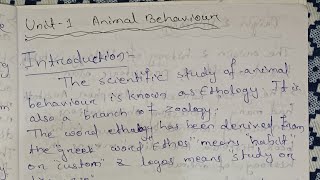 Unit-1 Animal Behaviour
Introduction-
The scientific study of animal
behaviour is known as Ethology. It is
also a branch of zoology.
The word ethology has been derived from
the "greek" word "Ethos" means 'habit'
on custom & logos means study on